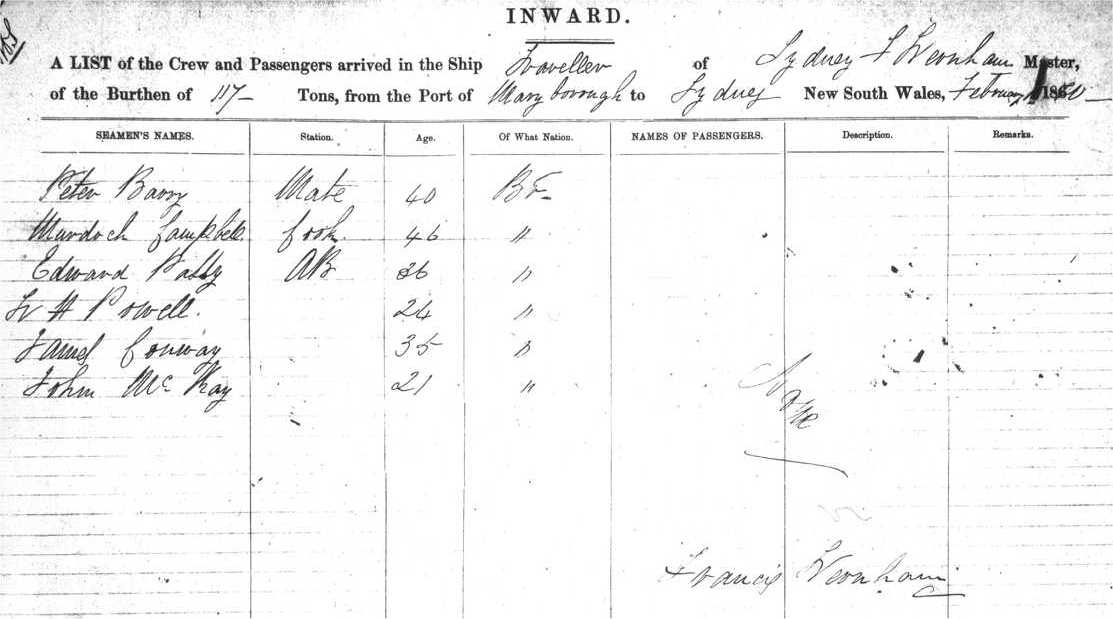 INWARD.
A LIST of the Crew and Passengers arrived in the Ship Traveller of Sydney F Wenham Master,
of the Burthen of 117 Tons, from the Port of Maryborough to Sydney New South Wales, February 1860
SEAMEN'S NAMES. Station. Age. Of What Nation. NAMES OF PASSENGERS. Description. Remarks.
Peter Barry Mate 40 Br
Murdoch Campbell Cook 46 "
Edward AB 36 "
W H Powell. 24 "
James Conway 35 "
John McKay 21 "
None
Francis Wenham